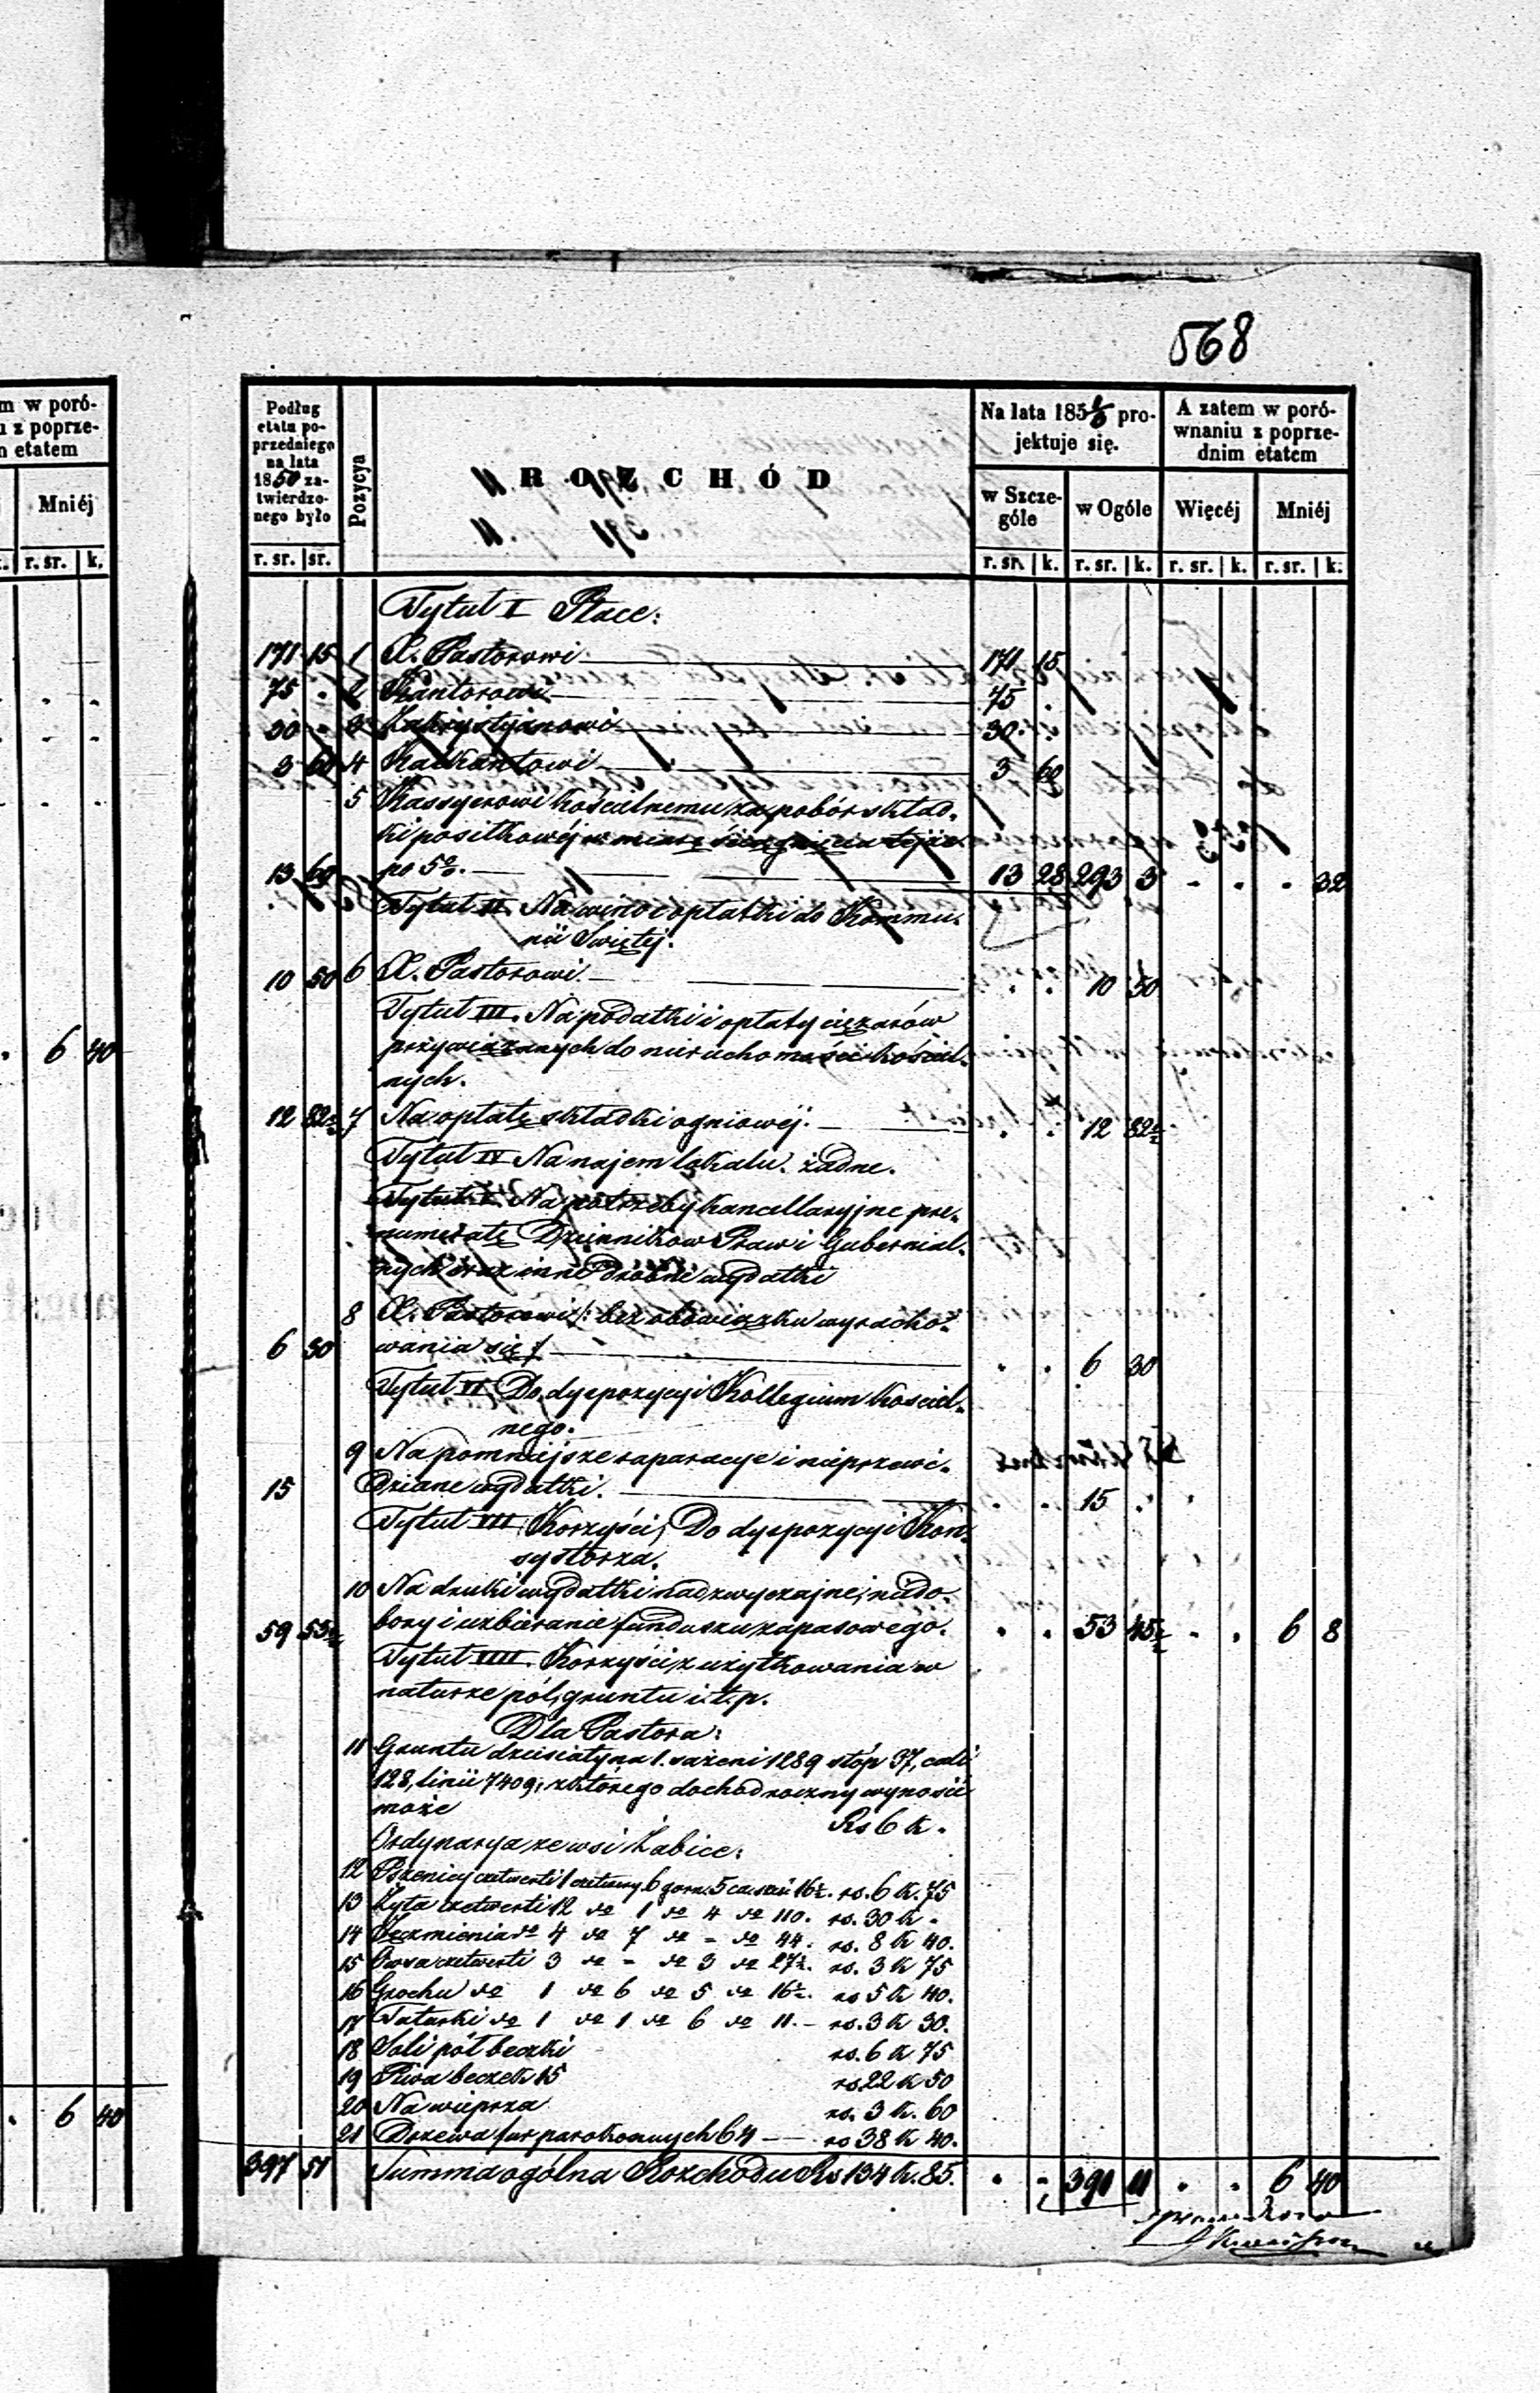 568
m w poró-
u z poprze-
n etatem
Mniéj
r. sr. k.
6 40
6 40
Podług etatu poprzedniego na lata 1850 zatwierdzonego było
Pozycya
ROZCHÓD
Na lata 185 projektuje się.
A zatem w porównaniu z poprzednim etatem
w Szczególe
w Ogóle
Więcéj
Mniéj
r. sr. sr.
r. sr. k. r. sr. k. r. sr. k. r. sr. k.
Tytuł I Płace:
171 15 1 X. Pastorowi 171 15
75 - 2 Kantorowi 75 .
30 - 3 Zakrystyanowi 30 .
3 60 4 Kalikantowi 3 60
5 Kassyerowi kościelnemu za pobór skład-
ki posiłkowéj w miarę ściągnięcia tejże
13 60 po 5%. 13 28 293 3 - . . 32
Tytuł II. Na wino i opłatki do Kommu-
nii Swiętéj.
10 50 6 X. Pastorowi . . 10 50
Tytuł III. Na podatki i opłaty ciężarów
przywiązanych do nieruchomości kościel-
nych.
12 82½ 7 Na opłatę składki ogniowéj . . 12 82½
Tytuł IV Na najem lokalu. żadne.
Tytuł V. Na potrzeby kancellaryjne pre-
numeratę Dzienników Praw i Gubernial-
nych oraz inne drobne wydatki
8 X. Pastorowi /: bez obowiązku wyracho-
6 30 wania się / . . 6 30
Tytuł VI Do dyspozycyi Kollegium kościel-
nego.
9 Na pomniejsze raparacye i nieprzewi-
15 dziane wydatki. . . 15 .
Tytuł VII Korzyści, Do dyspozycyi Kon-
systorza.
10 Na druki wydatki nadzwyczajne, niedo-
59 53½ bory i uzbieranie funduszu zapasowego. . . 53 45½ - . 6 8
Tytuł VIII. Korzyści z użytkowania w
naturze pól, gruntu i.t.p.
Dla Pastora:
11 Gruntu dziesiatyna 1. sażeni 1289 stóp 37, cali
128, linii 7409; z którego dochód roczny wynosić
może Rs 6 k -
Ordynarya ze wsi Łabice:
12 Pszenicy czetwerti 1 czetwery 6 garn. 5 cz. 16½. rs. 6 k. 75
13 Żyta czetwerti 12 do 1 do 4 do 110. rs. 30 k -
14 Jęczmienia do 4 do 7 do - do 44. rs. 8 k 40.
15 Owsa czetwerti 3 do - do 3 do 27½. rs. 3 k 75
16 Grochu do 1 do 6 do 5 do 16½. rs 5 k 40.
17 Tatarki do 1 do 1 do 6 do 11. - rs. 3 k 30.
18 Soli pół beczki rs. 6 k 75
19 Piwa beczek 15 rs 22 k 50
20 Na wieprza rs. 3 k. 60
21 Drzewa fur parokonnych 64 rs 38 k 40.
397 51 Summa ogólna Rozchodu Rs 134 k. 85. . - 391 11 . . 6 40